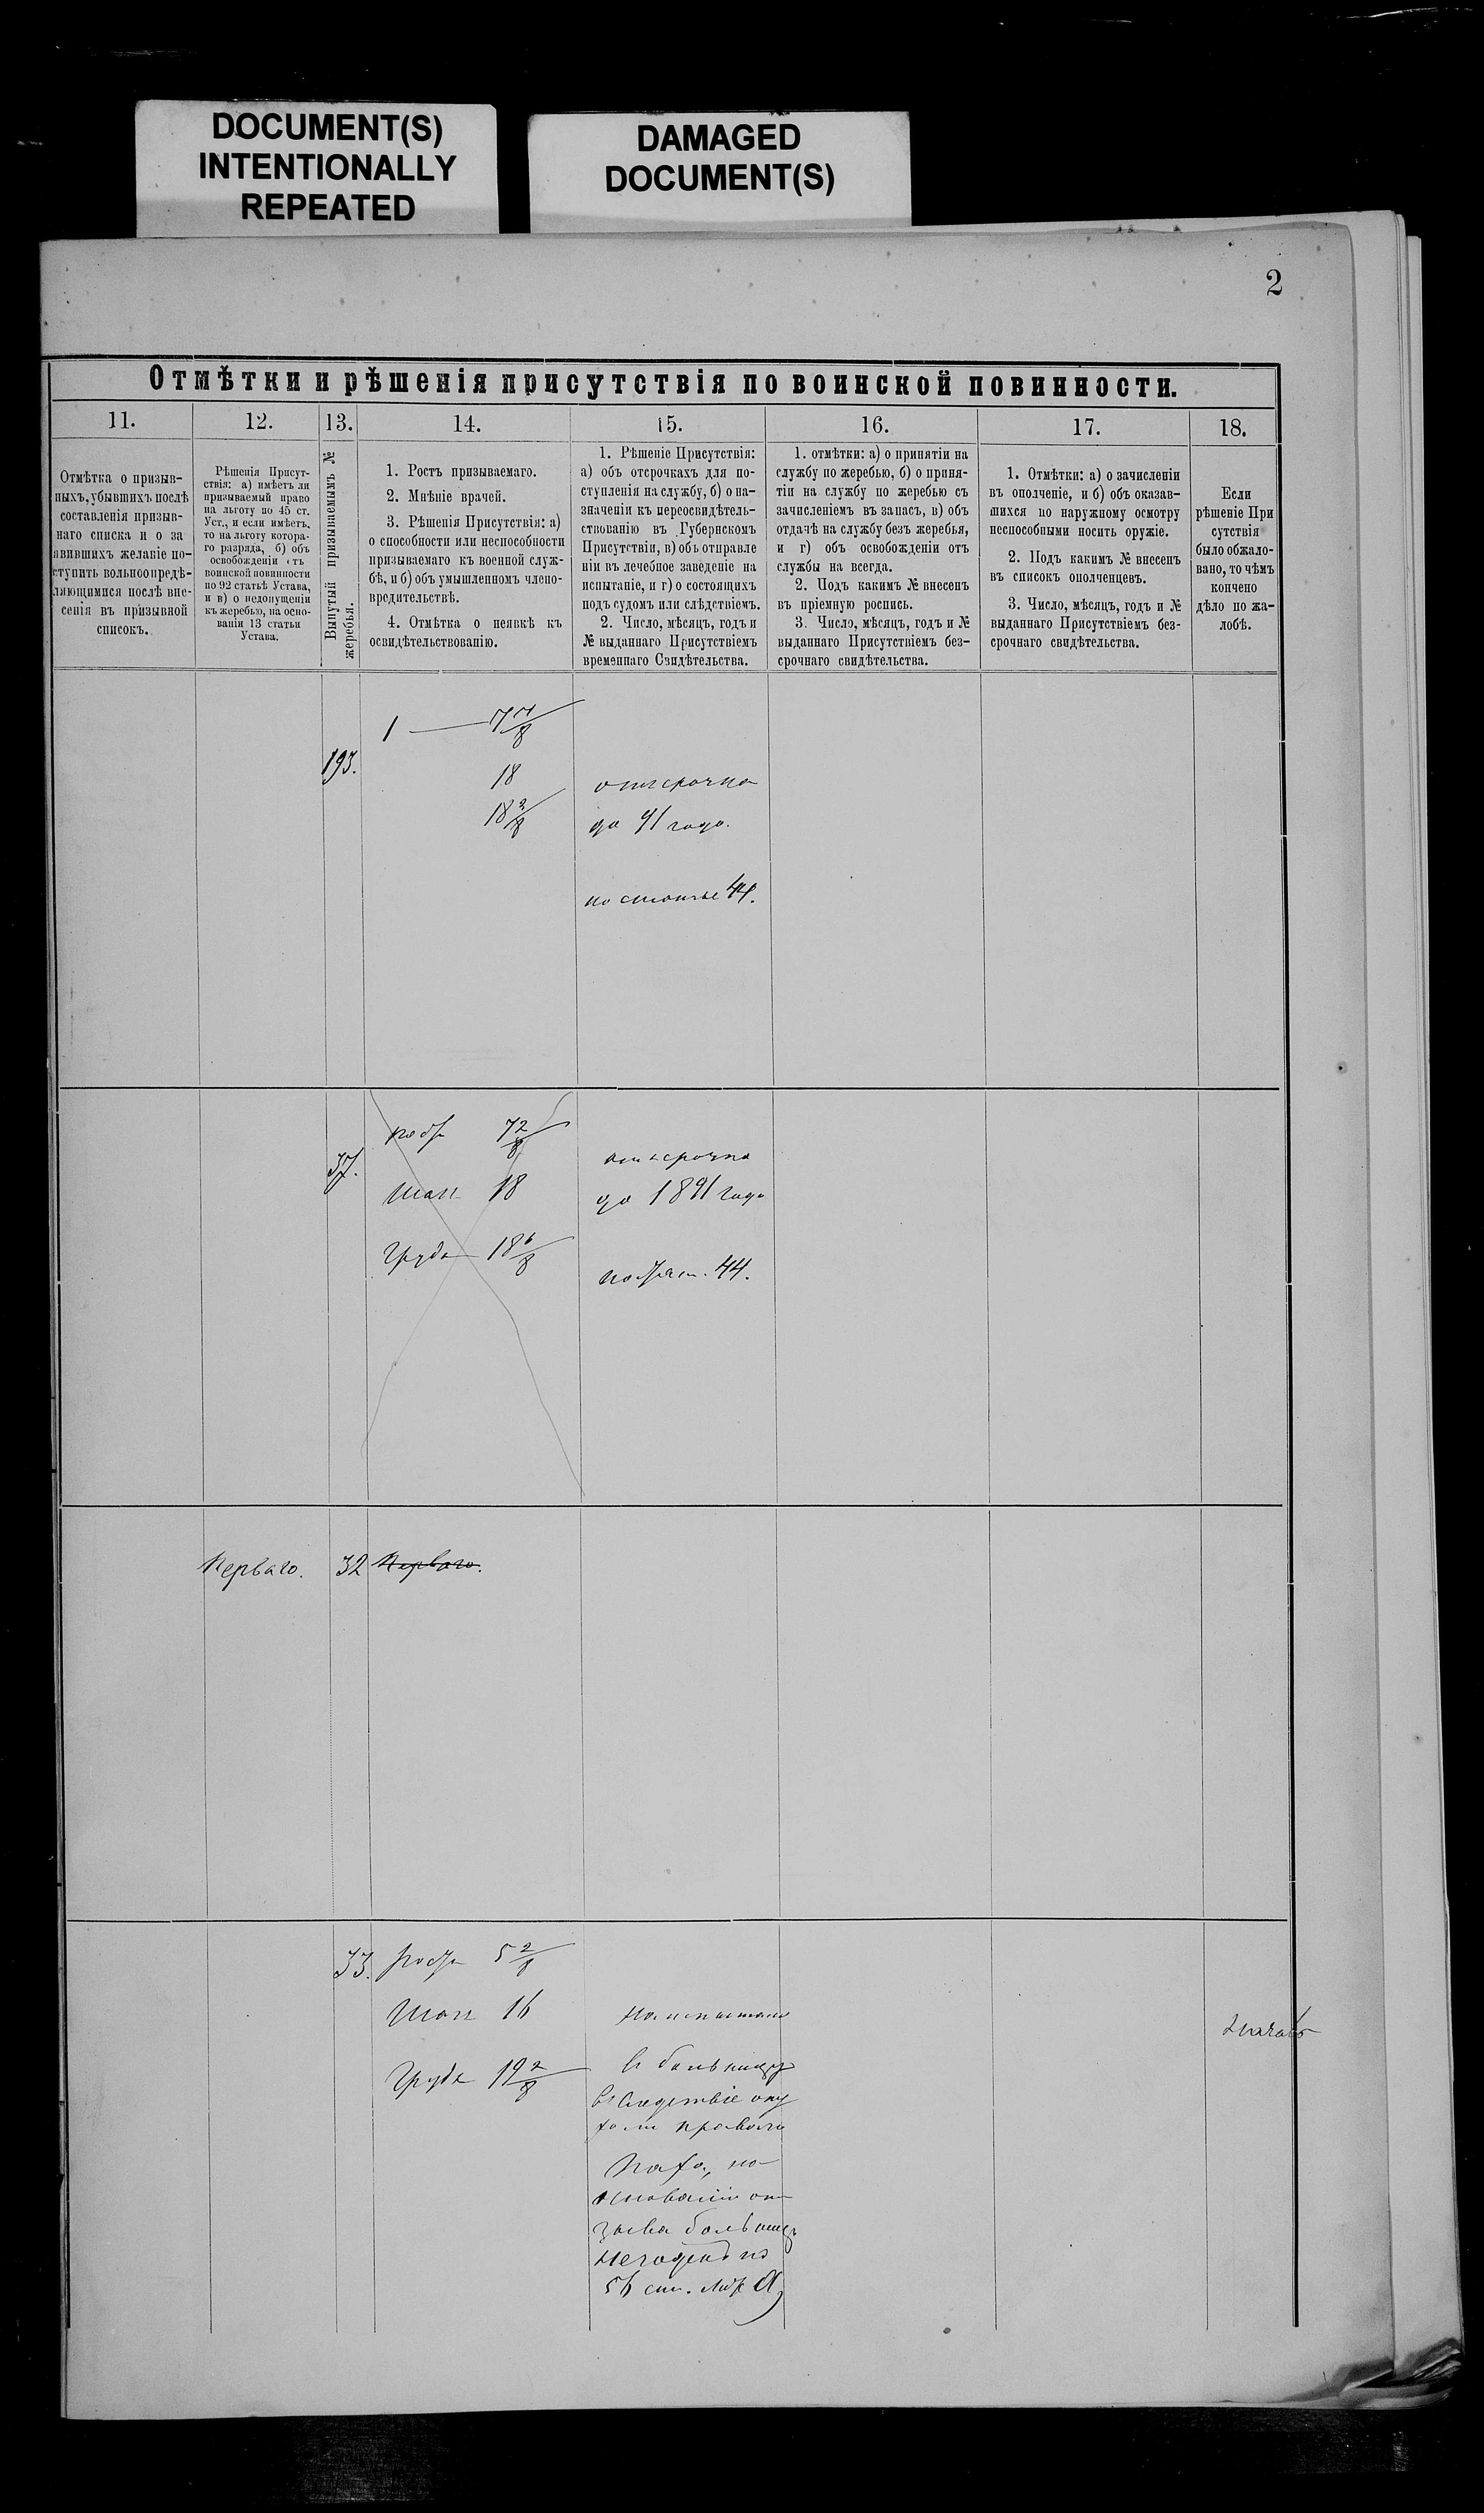 DOCUMENT(S)
INTENTIONALLY
REPEATED
DAMAGED
DOCUMENT(S)
2
Отмѣтки и рѣшенія присутствія по воинской повинности.
11.
Отмѣтка о призыв-
ныхъ, убывшихъ послѣ
составленія призыв-
наго списка и о за
явившихъ желаніе по-
ступить вольноопредѣ-
ляющимися послѣ вне-
сенія въ призывной
списокъ.
12.
Рѣшенія Присут-
ствія: а) имѣетъ ли
призываемый право
на льготу по 45 ст.
Уст., и если имѣетъ,
то на льготу котора-
го разряда, б) объ
освобожденіи отъ
воинской повинности
по 92 статьѣ Устава,
и в) о недопущеніи
къ жеребью, на осно-
ваніи 13 статьи
Устава.
13.
Вынутый призываемымъ №
жеребья.
14.
1. Ростъ призываемаго.
2. Мнѣніе врачей.
3. Рѣшенія Присутствія: а)
о способности или неспособности
призываемаго къ военной служ-
бѣ, и б) объ умышленномъ члено-
вредительствѣ.
4. Отмѣтка о неявкѣ къ
освидѣтельствованію.
15.
1. Рѣшеніе Присутствія:
а) объ отсрочкахъ для по-
ступленія на службу, б) о на-
значеніи къ переосвидѣтель-
ствованію въ Губернскомъ
Присутствіи, в) объ отправле
ніи въ лечебное заведеніе на
испытаніе, и г) о состоящихъ
подъ судомъ или слѣдствіемъ.
2. Число, мѣсяцъ, годъ и
№ выданнаго Присутствіемъ
временнаго Свидѣтельства.
16.
1. отмѣтки: а) о принятіи на
службу по жеребью, б) о приня-
тіи на службу по жеребью съ
зачисленіемъ въ запасъ, в) объ
отдачѣ на службу безъ жеребья,
и г) объ освобожденіи отъ
службы на всегда.
2. Подъ какимъ № внесенъ
въ пріемную роспись.
3. Число, мѣсяцъ, годъ и №
выданнаго Присутствіемъ без-
срочнаго свидѣтельства.
17.
1. Отмѣтки: а) о зачисленіи
въ ополченіе, и б) объ оказав-
шихся по наружному осмотру
неспособными носить оружіе.
2. Подъ какимъ № внесенъ
въ списокъ ополченцевъ.
3. Число, мѣсяцъ, годъ и №
выданнаго Присутствіемъ без-
срочнаго свидѣтельства.
18.
Если
рѣшеніе При
сутствія
было обжало-
вано, то чѣмъ
кончено
дѣло по жа-
лобѣ.
193.
1 — 7 7/8
18
18 3/8
отсрочка
до 91 года.
по статье 44.
37.
7 2/8
18
Грудь 18 6/8
отсрочка
до 1891 года
44.
Перваго.
32
Перваго.
33.
Ростъ 5 2/8
16
Грудь 19 2/8
на испытаніе
въ больницу
вследствіе опу
холи праваго
паха, на
основаніи от
зыва больницы
негоденъ по
56 ст. Лит А